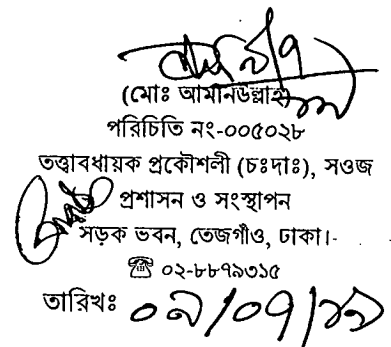 (মোঃ আমানউল্লাহ)
পরিচিতি নং-০০৫০২৮
তত্ত্বাবধায়ক প্রকৌশলী (চঃদাঃ), সওজ
প্রশাসন ও সংস্থাপন
সড়ক ভবন, তেজগাঁও, ঢাকা।
☎ ০২-৮৮৭৯৩১৫
তারিখঃ ০৯/০৭/১৯